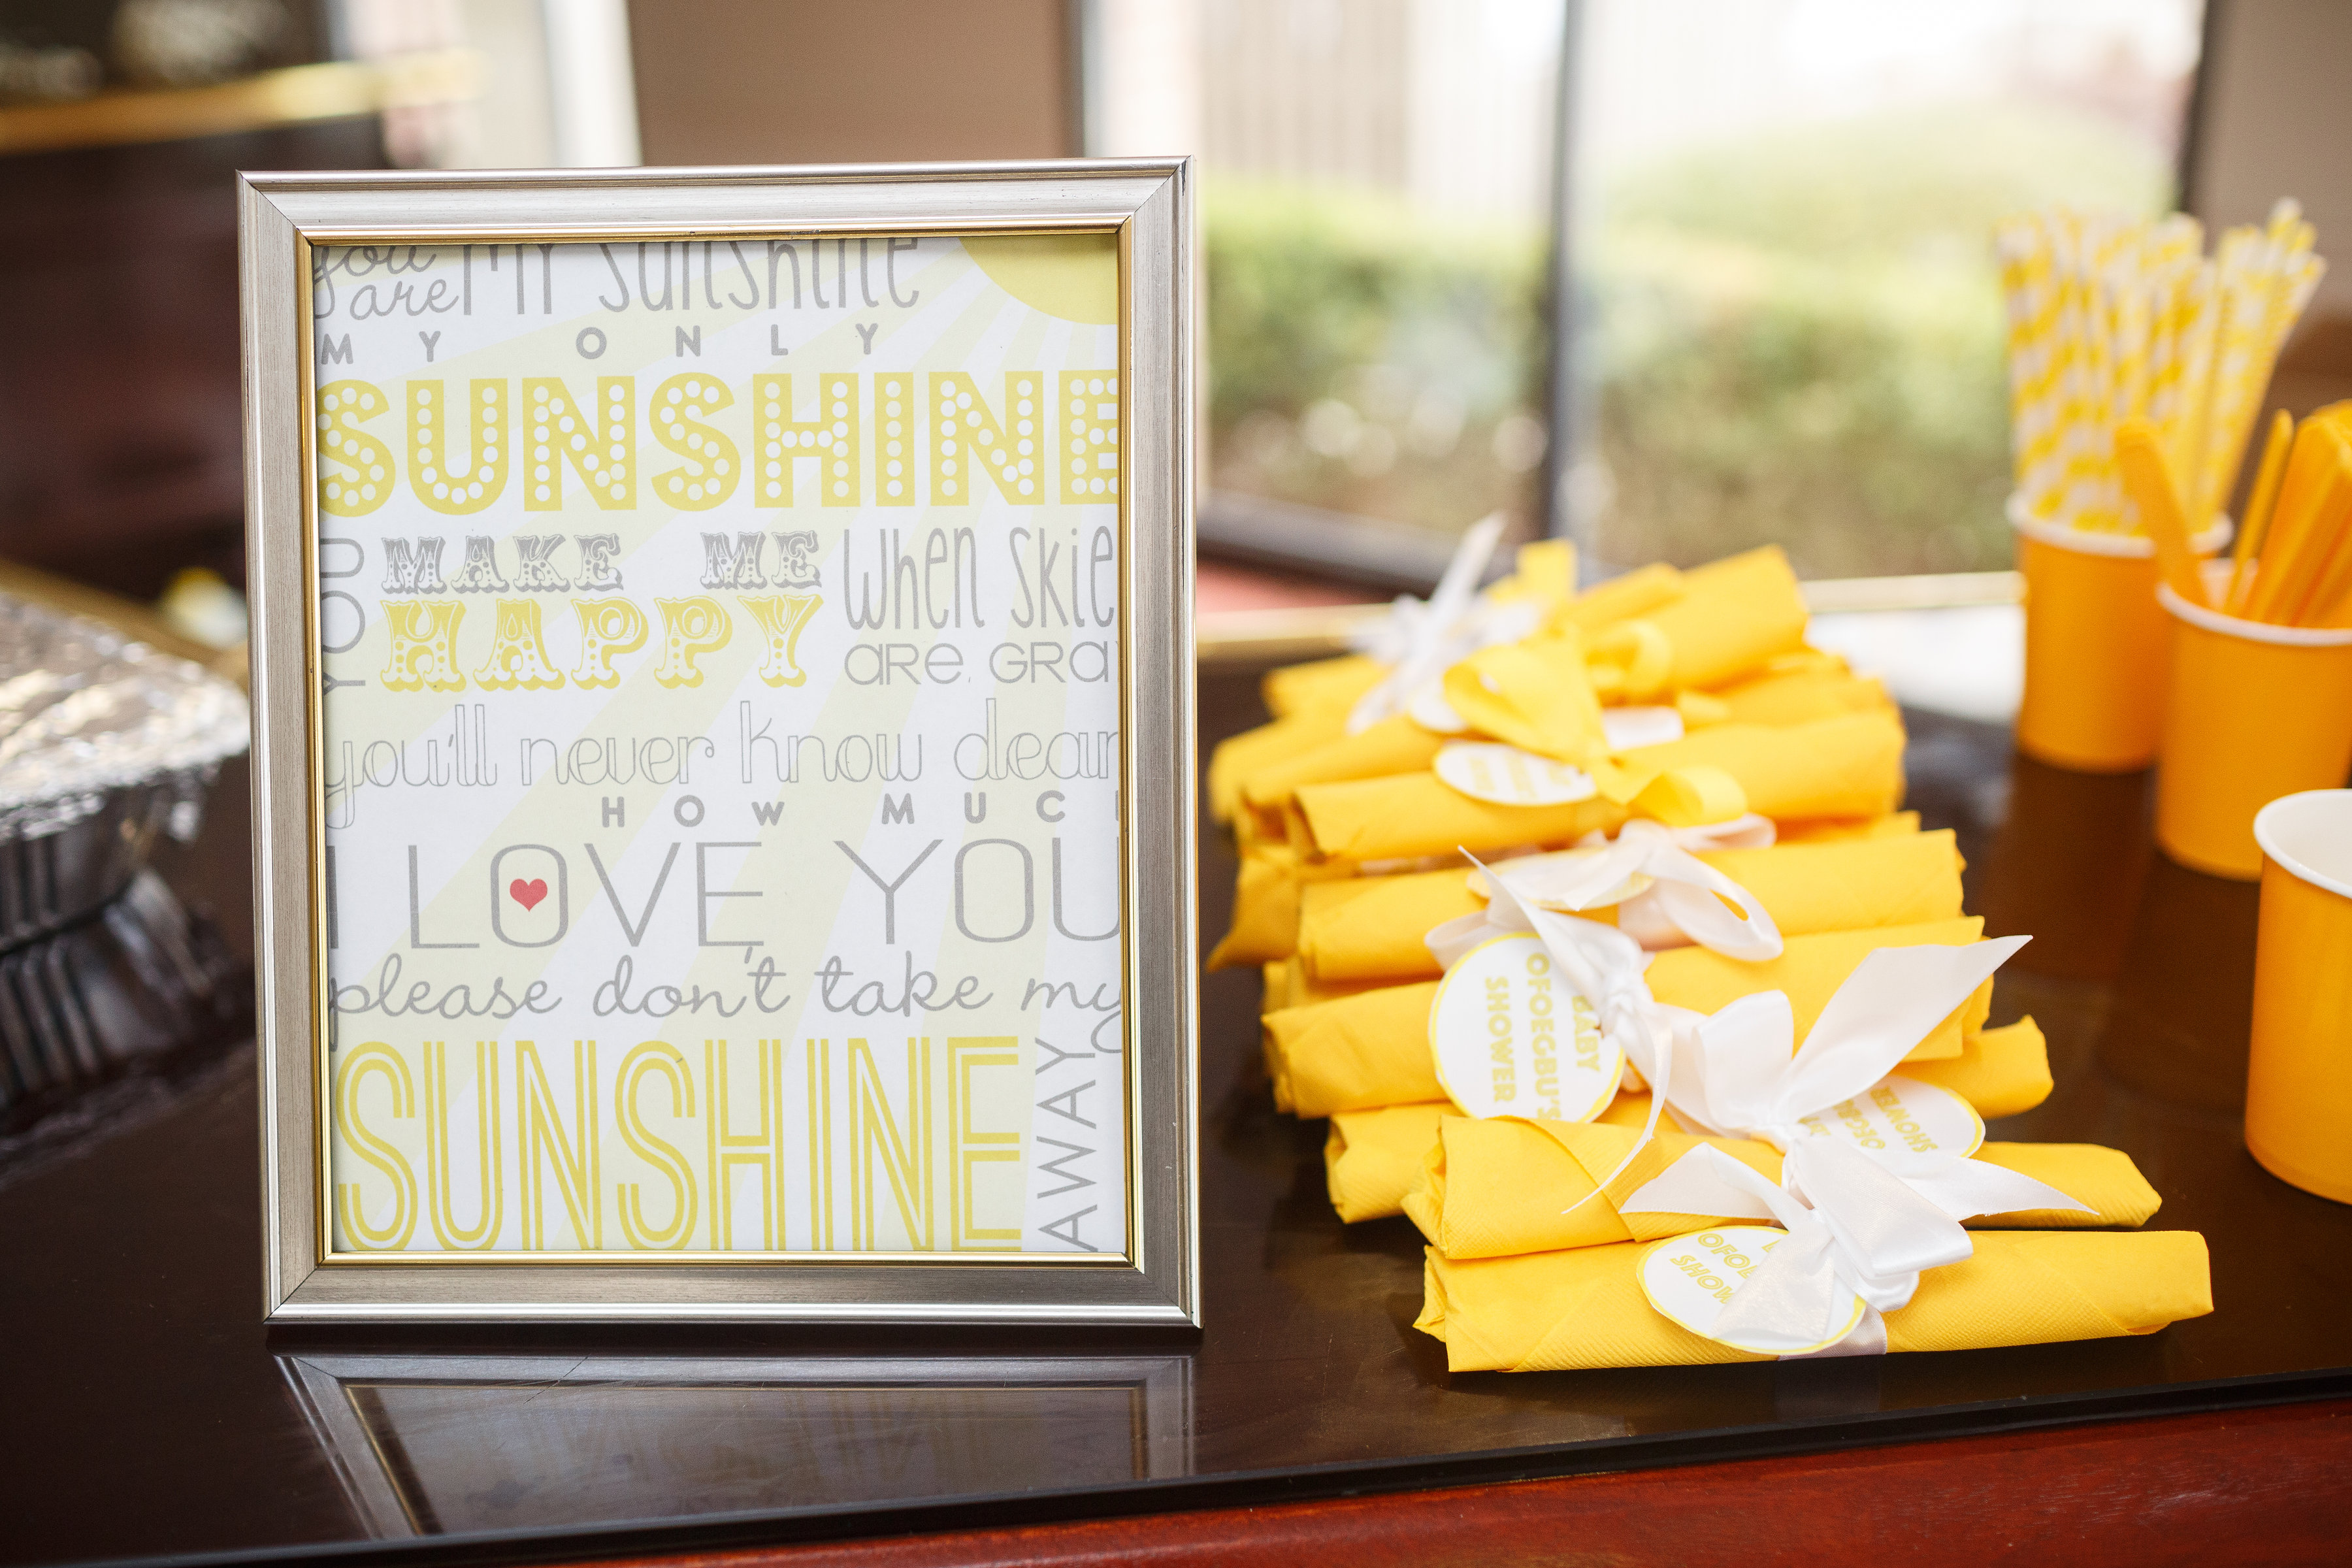 you are MY sunshine
MY ONLY
SUNSHINE
YOU MAKE ME HAPPY
when skie
are GRA
you'll never know dear
HOW MUC
I LOVE YOU
please don't take my
SUNSHINE
AWAY
BABY
OFOEGBU'S
SHOWER
SHOWER
OFOE
SHOW